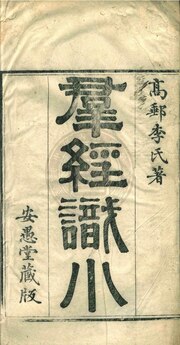 高郵李氏著
羣經識小
安愚堂藏版